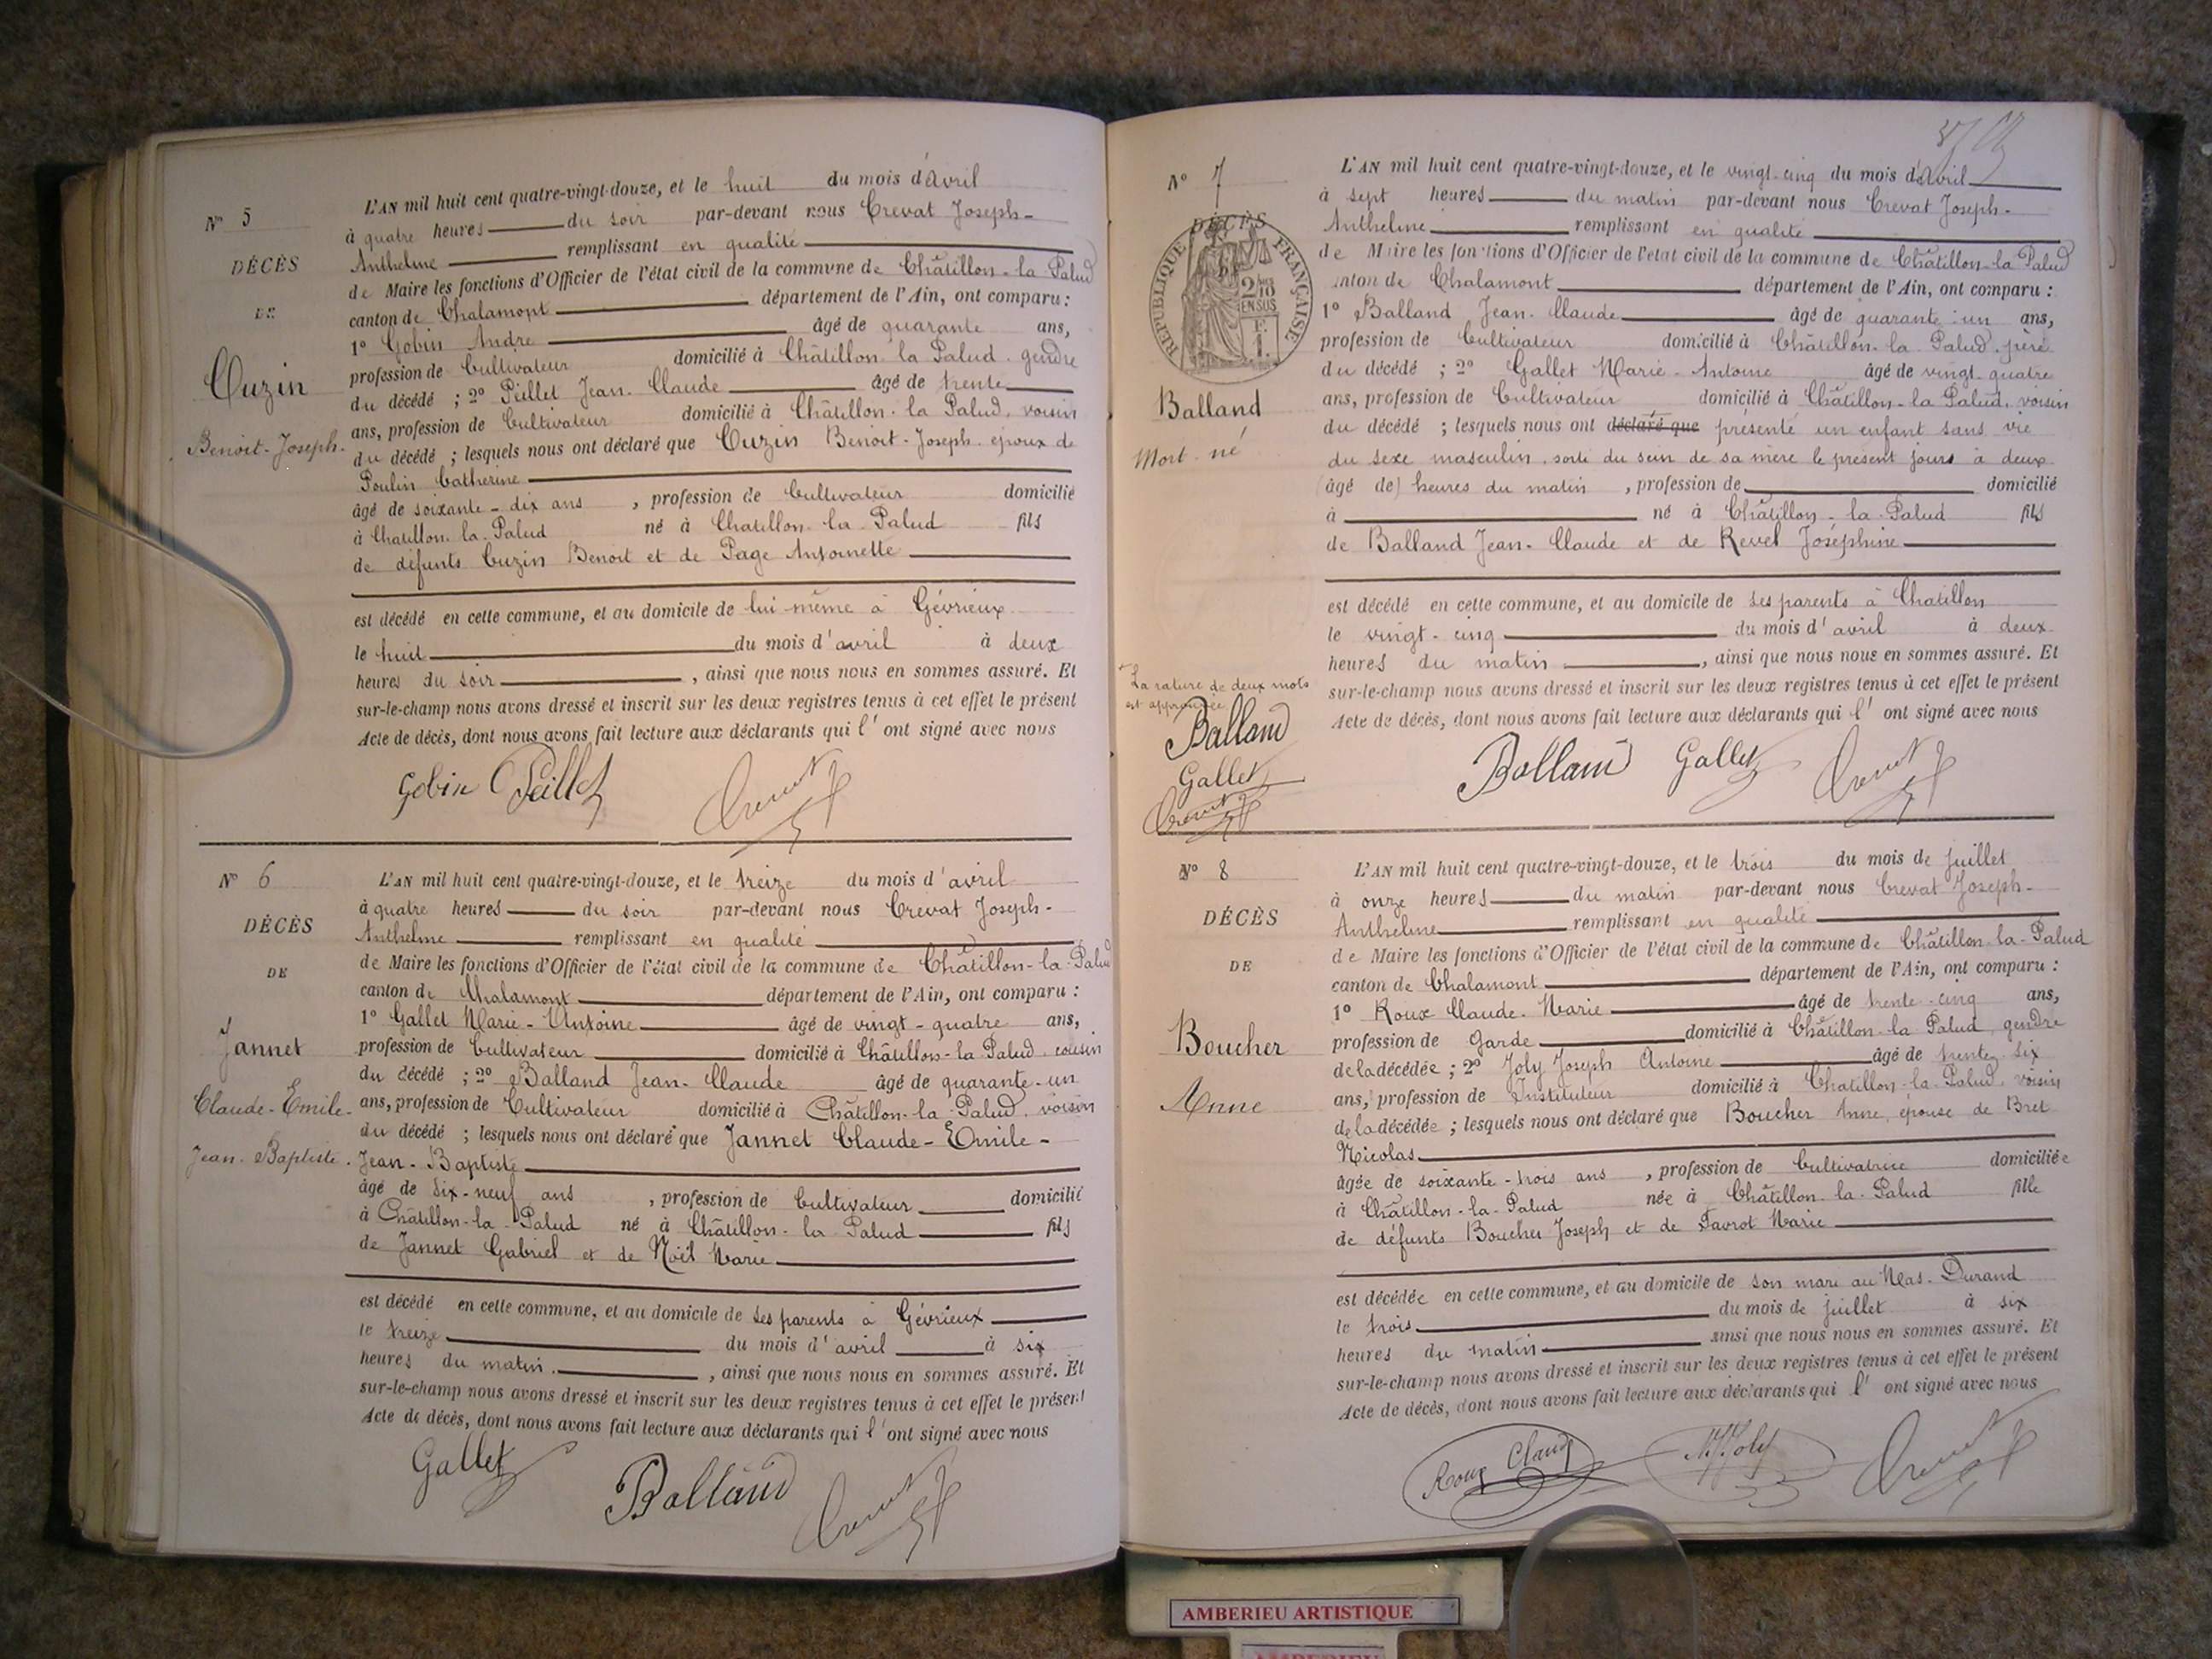 N° 5
DÉCÈS
DE
Cuzin
Benoit-Joseph.
L'AN mil huit cent quatre-vingt-douze, et le huit du mois d'avril
à quatre heures du soir par-devant nous Crevat Joseph-
Anthelme remplissant en qualité
de Maire les fonctions d'Officier de l'état civil de la commune de Châtillon-la Palud
canton de Chalamont département de l'Ain, ont comparu :
1° Gobin André âgé de quarante ans,
profession de Cultivateur domicilié à Châtillon-la Palud. gendre
du décédé ; 2° Peillet Jean-Claude âgé de trente
ans, profession de Cultivateur domicilié à Châtillon-la Palud, voisin
du décédé ; lesquels nous ont déclaré que Cuzin Benoit-Joseph. époux de
Poulin Catherine
âgé de soixante-dix ans , profession de Cultivateur domicilié
à Chatillon-la-Palud né à Chatillon-la-Palud fils
de défunts Cuzin Benoit et de Page Antoinette
est décédé en cette commune, et au domicile de lui-même à Gévrieux
le huit du mois d'avril à deux
heures du soir , ainsi que nous nous en sommes assuré. Et
sur-le-champ nous avons dressé et inscrit sur les deux registres tenus à cet effet le présent
Acte de décès, dont nous avons fait lecture aux déclarants qui l'ont signé avec nous
Gobin Peillet Crevat
N° 6
DÉCÈS
DE
Jannet
Claude-Emile-
Jean-Baptiste.
L'AN mil huit cent quatre-vingt-douze, et le treize du mois d'avril
à quatre heures du soir par-devant nous Crevat Joseph-
Anthelme remplissant en qualité
de Maire les fonctions d'Officier de l'état civil de la commune de Châtillon-la-Palud
canton de Chalamont département de l'Ain, ont comparu :
1° Gallet Marie-Antoine âgé de vingt-quatre ans,
profession de Cultivateur domicilié à Châtillon-la-Palud. cousin
du décédé ; 2° Balland Jean-Claude âgé de quarante-un
ans, profession de Cultivateur domicilié à Châtillon-la-Palud. voisin
du décédé ; lesquels nous ont déclaré que Jannet Claude-Emile-
Jean-Baptiste
âgé de dix-neuf ans , profession de Cultivateur domicilié
à Châtillon-la-Palud né à Châtillon-la-Palud fils
de Jannet Gabriel et de Noël Marie
est décédé en cette commune, et au domicile de ses parents à Gévrieux
le treize du mois d'avril à six
heures du matin. , ainsi que nous nous en sommes assuré. Et
sur-le-champ nous avons dressé et inscrit sur les deux registres tenus à cet effet le présent
Acte de décès, dont nous avons fait lecture aux déclarants qui l'ont signé avec nous
Gallet Balland Crevat
N° 7
DÉCÈS
REPUBLIQUE FRANÇAISE
2/10
EN SUS
Balland
Mort-né
L'AN mil huit cent quatre-vingt-douze, et le vingt-cinq du mois d'avril
à sept heures du matin par-devant nous Crevat Joseph-
Anthelme remplissant en qualité
de Maire les fonctions d'Officier de l'état civil de la commune de Châtillon-la Palud
canton de Chalamont département de l'Ain, ont comparu :
1° Balland Jean-Claude âgé de quarante-un ans,
profession de Cultivateur domicilié à Châtillon-la Palud. père
du décédé ; 2° Gallet Marie-Antoine âgé de vingt-quatre
ans, profession de Cultivateur domicilié à Châtillon-la Palud, voisin
du décédé ; lesquels nous ont déclaré que présenté un enfant sans vie
du sexe masculin, sorti du sein de sa mère le présent jours à deux
(âgé de) heures du matin , profession de domicilié
à né à Châtillon-la-Palud fils
de Balland Jean-Claude et de Revel Joséphine
est décédé en cette commune, et au domicile de ses parents à Chatillon
le vingt-cinq du mois d'avril à deux
heures du matin , ainsi que nous nous en sommes assuré. Et
sur-le-champ nous avons dressé et inscrit sur les deux registres tenus à cet effet le présent
Acte de décès, dont nous avons fait lecture aux déclarants qui l'ont signé avec nous
La rature de deux mots
est approuvée
Balland
Gallet
Crevat
Balland Gallet Crevat
N° 8
DÉCÈS
DE
Boucher
Anne
L'AN mil huit cent quatre-vingt-douze, et le trois du mois de juillet
à onze heures du matin par-devant nous Crevat Joseph-
Anthelme remplissant en qualité
de Maire les fonctions d'Officier de l'état civil de la commune de Châtillon-la-Palud
canton de Chalamont département de l'Ain, ont comparu :
1° Roux Claude-Marie âgé de trente-cinq ans,
profession de Garde domicilié à Châtillon-la Palud, gendre
de la décédée ; 2° Joly Joseph Antoine âgé de trente-six
ans, profession de Instituteur domicilié à Chatillon-la-Palud, voisin
de la décédée ; lesquels nous ont déclaré que Boucher Anne, épouse de Bret
Nicolas
âgée de soixante-trois ans , profession de Cultivatrice domiciliée
à Châtillon-la-Palud née à Châtillon-la-Palud fille
de défunts Boucher Joseph et de Favrot Marie
est décédée en cette commune, et au domicile de son mari au Mas-Durand
le trois du mois de juillet à six
heures du matin ainsi que nous nous en sommes assuré. Et
sur-le-champ nous avons dressé et inscrit sur les deux registres tenus à cet effet le présent
Acte de décès, dont nous avons fait lecture aux déclarants qui l'ont signé avec nous
Roux Claud Joly Crevat
AMBERIEU ARTISTIQUE
AMBERIEU